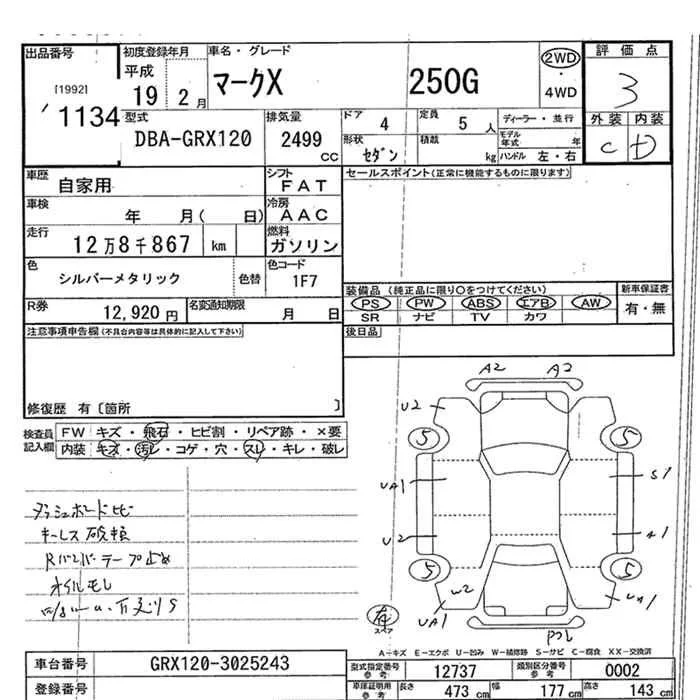 出品番号 初度登録年月 車名・グレード 2WD 評価点
[1992] 平成 マークX 250G ・ 3
1134 19 2月 4WD
型式 排気量 ドア 4 定員 5人 ディーラー・並行 外装 内装
DBA-GRX120 2499cc 形状 セダン 積載 kg モデル年式 年 C D
ハンドル 左・右
車歴 自家用 シフト FAT セールスポイント(正常に機能するものに限ります)
車検 年 月( 日) 冷房 AAC
走行 12万8千867 km 燃料 ガソリン
色 シルバーメタリック 色替 色コード 1F7
装備品(純正品に限り○をつけてください) 新車保証書
PS PW ABS エアB AW 有・無
SR ナビ TV カワ
R券 12,920円 名変通知期限 月 日
注意事項申告欄(不具合内容等は具体的に記入して下さい) 後日品
修復歴 有〔箇所 〕
検査員記入欄 FW キズ・飛石・ヒビ割・リペア跡・×要
内装 キズ・汚レ・コゲ・穴・スレ・キレ・破レ
A2 A2
U2
5 5
UA1 S1
U2 A1
5 5
W2
UA1 UA1
有
スペア
ダッシュボードヒビ
キーレス破損
Rバンパーテープ止め
オイルモレ
A-キズ E-エクボ U-凹み W-補修跡 S-サビ C-腐食 XX-交換済
車台番号 GRX120-3025243 型式指定番号 参考 12737 類別区分番号 参考 0002
登録番号 車庫証明用 参考 長さ 473cm 幅 177cm 高さ 143cm